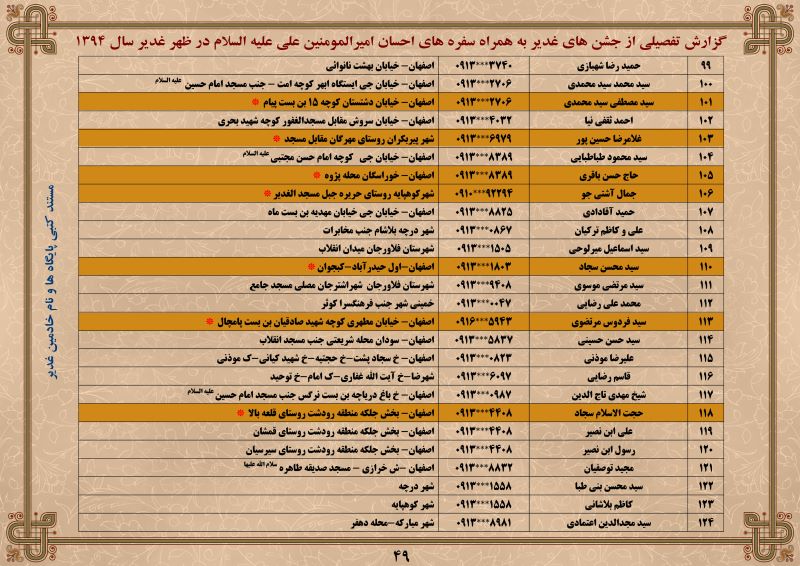 گزارش تفصیلی از جشن های غدیر به همراه سفره های احسان امیرالمومنین علی علیه السلام در ظهر غدیر سال ۱۳۹۴
۹۹ حمید رضا شهبازی ۰۹۱۳***۳۷۴۰ اصفهان- خیابان بهشت نانوائی
۱۰۰ سید محمد سید محمدی ۰۹۱۳***۲۷۰۶ اصفهان- خیابان جی ایستگاه ابهر کوچه امت - جنب مسجد امام حسین علیه السلام
۱۰۱ سید مصطفی سید محمدی ۰۹۱۳***۲۷۰۶ اصفهان- خیابان دشتستان کوچه ۱۵ بن بست پیام *
۱۰۲ احمد ثقفی نیا ۰۹۱۳***۴۰۳۲ اصفهان- خیابان سروش مقابل مسجدالغفور کوچه شهید بحری
۱۰۳ غلامرضا حسین پور ۰۹۱۳***۶۹۷۹ شهر پیربکران روستای مهرگان مقابل مسجد *
۱۰۴ سید محمود طباطبایی ۰۹۱۳***۸۳۸۹ اصفهان- خیابان جی کوچه امام حسن مجتبی علیه السلام
۱۰۵ حاج حسن باقری ۰۹۱۳***۸۳۸۹ اصفهان- خوراسگان محله پزوه *
۱۰۶ جمال آشتی جو ۰۹۱۰***۹۲۲۹۴ شهرکوهپایه روستای جزیره جبل مسجد الغدیر *
۱۰۷ حمید آقادادی ۰۹۱۳***۸۸۲۵ اصفهان- خیابان جی خیابان مهدیه بن بست ماه
۱۰۸ علی و کاظم ترکیان ۰۹۱۳***۰۸۶۷ شهر درچه پلاشام جنب مخابرات
۱۰۹ سید اسماعیل میرلوحی ۰۹۱۳***۱۵۰۵ شهرستان فلاورجان میدان انقلاب
۱۱۰ سید محسن سجاد ۰۹۱۳***۱۸۰۳ اصفهان-اول حیدرآباد-کبجوان *
۱۱۱ سید مرتضی موسوی ۰۹۱۳***۹۴۰۸ شهرستان فلاورجان شهراشترجان مصلی مسجد جامع
۱۱۲ محمد علی رضایی ۰۹۱۳***۰۰۴۷ خمینی شهر جنب فرهنگسرا کوثر
۱۱۳ سید فردوس مرتضوی ۰۹۱۶***۵۹۴۳ اصفهان- خیابان مطهری کوچه شهید صادقیان بن بست پامچال *
۱۱۴ سید حسن حسینی ۰۹۱۳***۵۸۳۷ اصفهان- سودان محله شریعتی جنب مسجد انقلاب
۱۱۵ علیرضا موذنی ۰۹۱۳***۰۸۲۳ اصفهان- خ سجاد پشت-خ حجتیه-خ شهید کیانی-ک موذنی
۱۱۶ قاسم رضایی ۰۹۱۳***۶۰۹۷ شهرضا-خ آیت الله غفاری-ک امام-خ توحید
۱۱۷ شیخ مهدی تاج الدین ۰۹۱۳***۰۹۸۷ اصفهان- خ باغ دریاچه بن بست نرگس جنب مسجد امام حسین علیه السلام
۱۱۸ حجت الاسلام سجاد ۰۹۱۳***۴۴۰۸ اصفهان- بخش جلگه منطقه رودشت روستای قلعه بالا *
۱۱۹ علی ابن نصیر ۰۹۱۳***۴۴۰۸ اصفهان- بخش جلگه منطقه رودشت روستای قمشان
۱۲۰ رسول ابن نصیر ۰۹۱۳***۴۴۰۸ اصفهان- بخش جلگه منطقه رودشت روستای سیرسیان
۱۲۱ مجید توصفیان ۰۹۱۳***۸۸۳۲ اصفهان -ش خرازی - مسجد صدیقه طاهره سلام الله علیها
۱۲۲ سید محسن بنی طبا ۰۹۱۳***۱۵۵۸ شهر درچه
۱۲۳ کاظم پلاشانی ۰۹۱۳***۱۵۵۸ شهر کوهپایه
۱۲۴ سید مجدالدین اعتمادی ۰۹۱۳***۸۹۸۱ شهر مبارکه-محله دهفر
مستند کتبی پایگاه ها و نام خادمین غدیر
۴۹